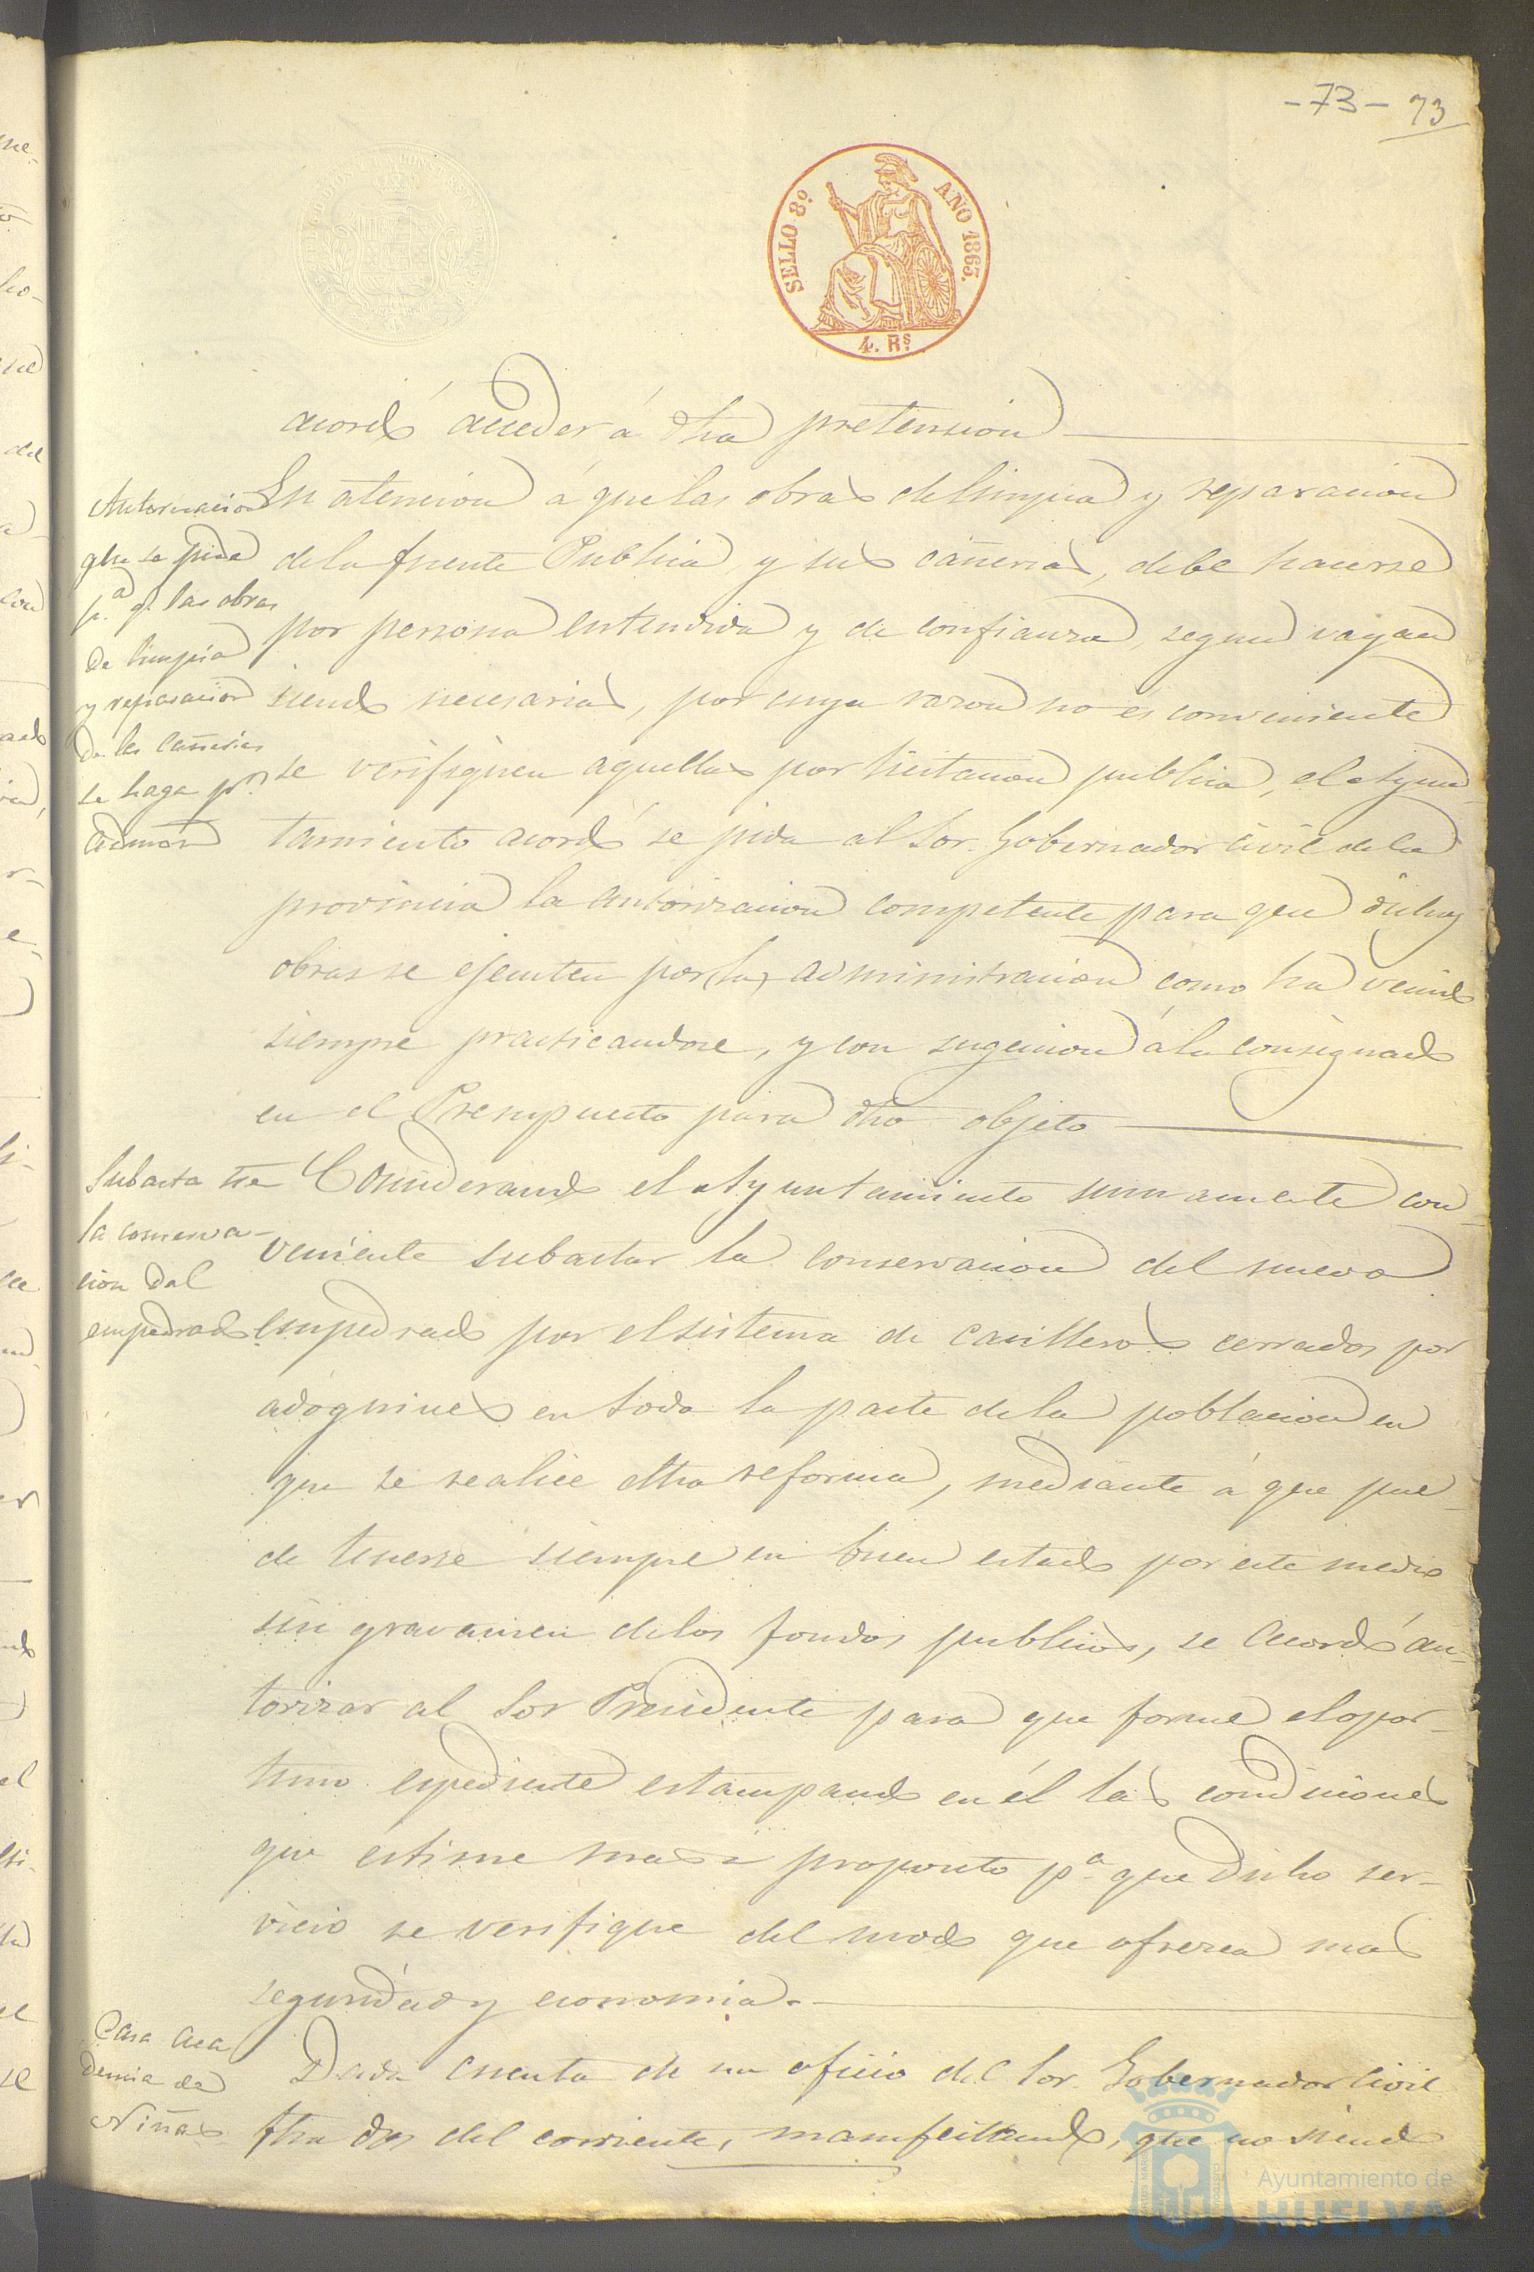 -73- 73
SELLO 8º AÑO 1865.
4. Rs
acordó acceder á dha pretension
Autorizacion
que se pida
p.a q. las obras
de limpia
y reparacion
de las cañerias
se haga pr.
admon
En atencion á que las obras de limpia y reparacion
de la fuente Publica y sus cañerias, debe hacerse
por persona entendida y de confianza, segun vayan
siendo necesarias, por cuya razon no és conveniente
se verifiquen aquellas por licitacion publica, el Ayun-
tamiento acordó se pida al Sor. Gobernador Civil de la
provincia la autorizacion competente para que dichas
obras se ejecuten por la administracion como ha venido
siempre practicandose, y con sugecion á lo consignado
en el Presupuesto para dho objeto
Subasta de
la conserva-
cion del
empedrado
Considerando el Ayuntamiento sumamente con-
veniente subastar la conservacion del nuevo
empedrado por el sistema de casilleros cerrados por
adoquines en toda la parte de la poblacion en
que se realice dha reforma, mediante á que pue-
de tenerse siempre en buen estado por este medio
sin gravamen de los fondos publicos, se acordó au-
torizar al Sor Presidente para que forme el opor-
tuno espediente estampando en él las condiciones
que estime mas á proposito pa. que dicho ser-
vicio se verifique del modo que ofrezca mas
seguridad y economia.
Casa Aca
demia de
Niñas
Dada cuenta de un oficio del Sor. Gobernador Civil
fha dos del corriente, manifestando, que no siendo
Ayuntamiento de
HUELVA